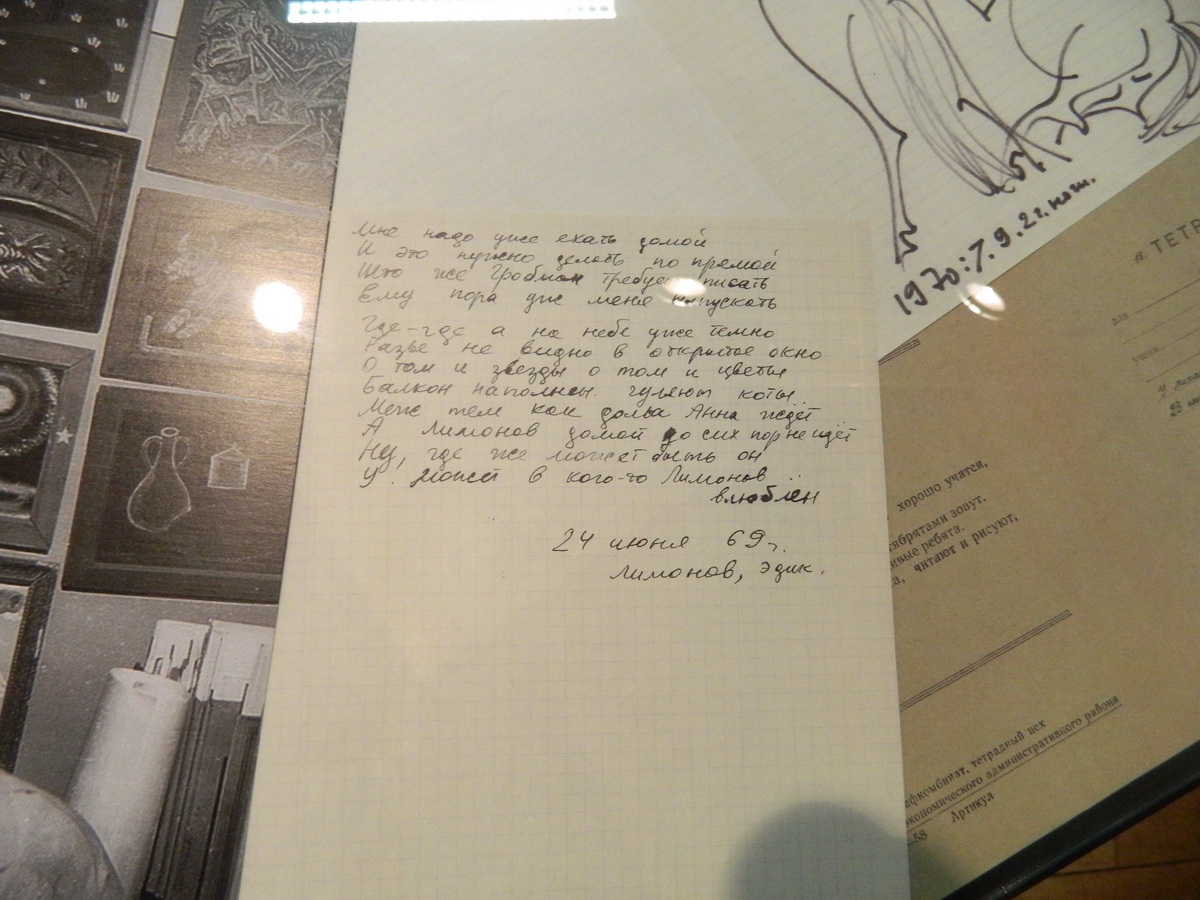 Мне надо уже ехать домой
И это нужно делать по прямой
Што же Гробман требует писать
Ему пора уж меня выпускать
Где-где а на небе уже темно
Разве не видно в открытое окно
О том и звезды о том и цветы
Балкон наполнен. гуляют коты..
Меж тем как дома Анна ждёт
А Лимонов домой до сих пор не идёт
Ну, где же может быть он
У. может в кого-то Лимонов
влюблён
24 июня 69г.
Лимонов, Эдик.
1970: 7. 9. 2 г.
ТЕТР
для
учен
хорошо учатся,
тябрятами зовут.
ивые ребята.
а, читают и рисуют,
афкомбинат, тетрадный цех
экономического административного района
.58 Артикул